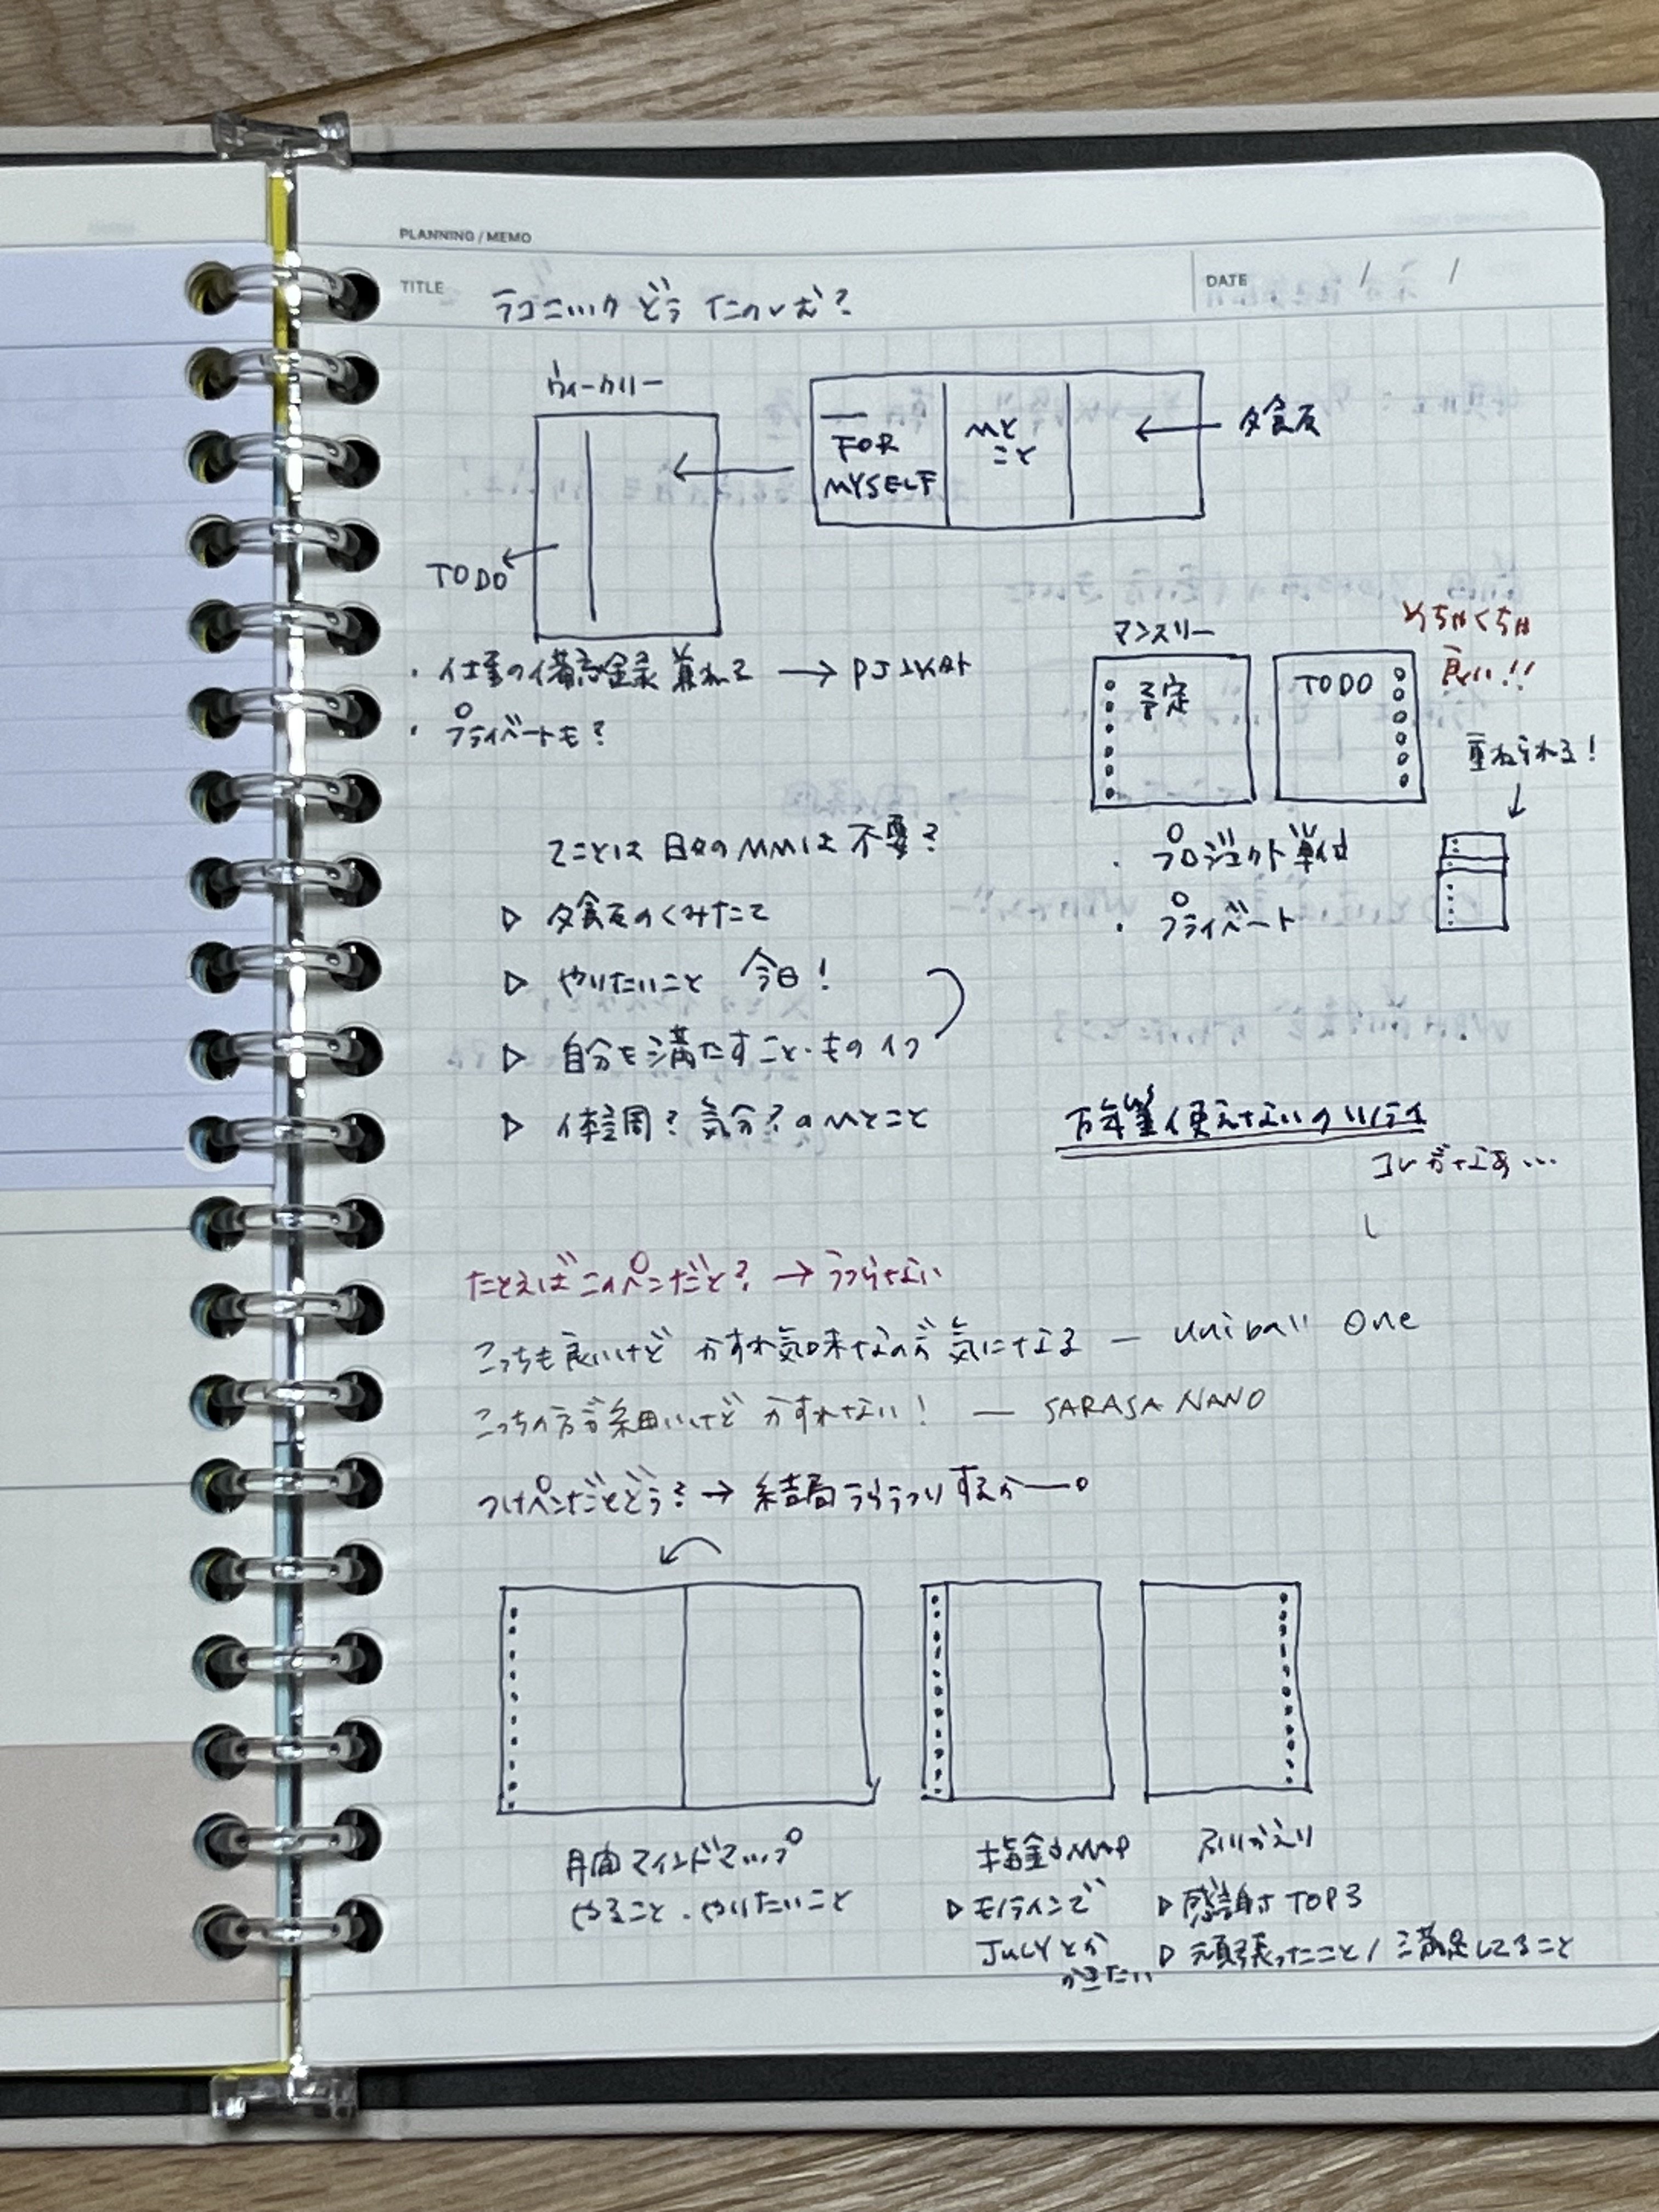 PLANNING / MEMO
TITLE ラコニック どう たのしむ?
DATE / /
ウィークリー
TODO
FOR
MYSELF
ひと
こと
夕食及
・仕事の備忘録 兼ねて → PJ
・プライベートも?
マンスリー
予定
TODO
めちゃくちゃ
良い!!
重ねられる!
・プロジェクト単位
・プライベート
てことは 日々の は 不要?
▷ 夕食のくみたて
▷ やりたいこと 今日!
▷ 自分を満たすこと・もの 1つ
▷ 体調?気分?のひとこと
万年筆使えないのツライ
コレがなぁ…
たとえばこのペンだと? → うつらない
こっちも良いけど かすれ気味なのが気になる ー uniball One
こっちの方が細いけど かすれない! ー SARASA NANO
つけペンだとどう? → 結局うらうつりするかー。
月間マインドマップ
やること・やりたいこと
MAP
▷ モノラインで
JULYとか
かきたい
ふりかえり
▷ 感謝 TOP3
▷ 頑張ったこと / 満足してること